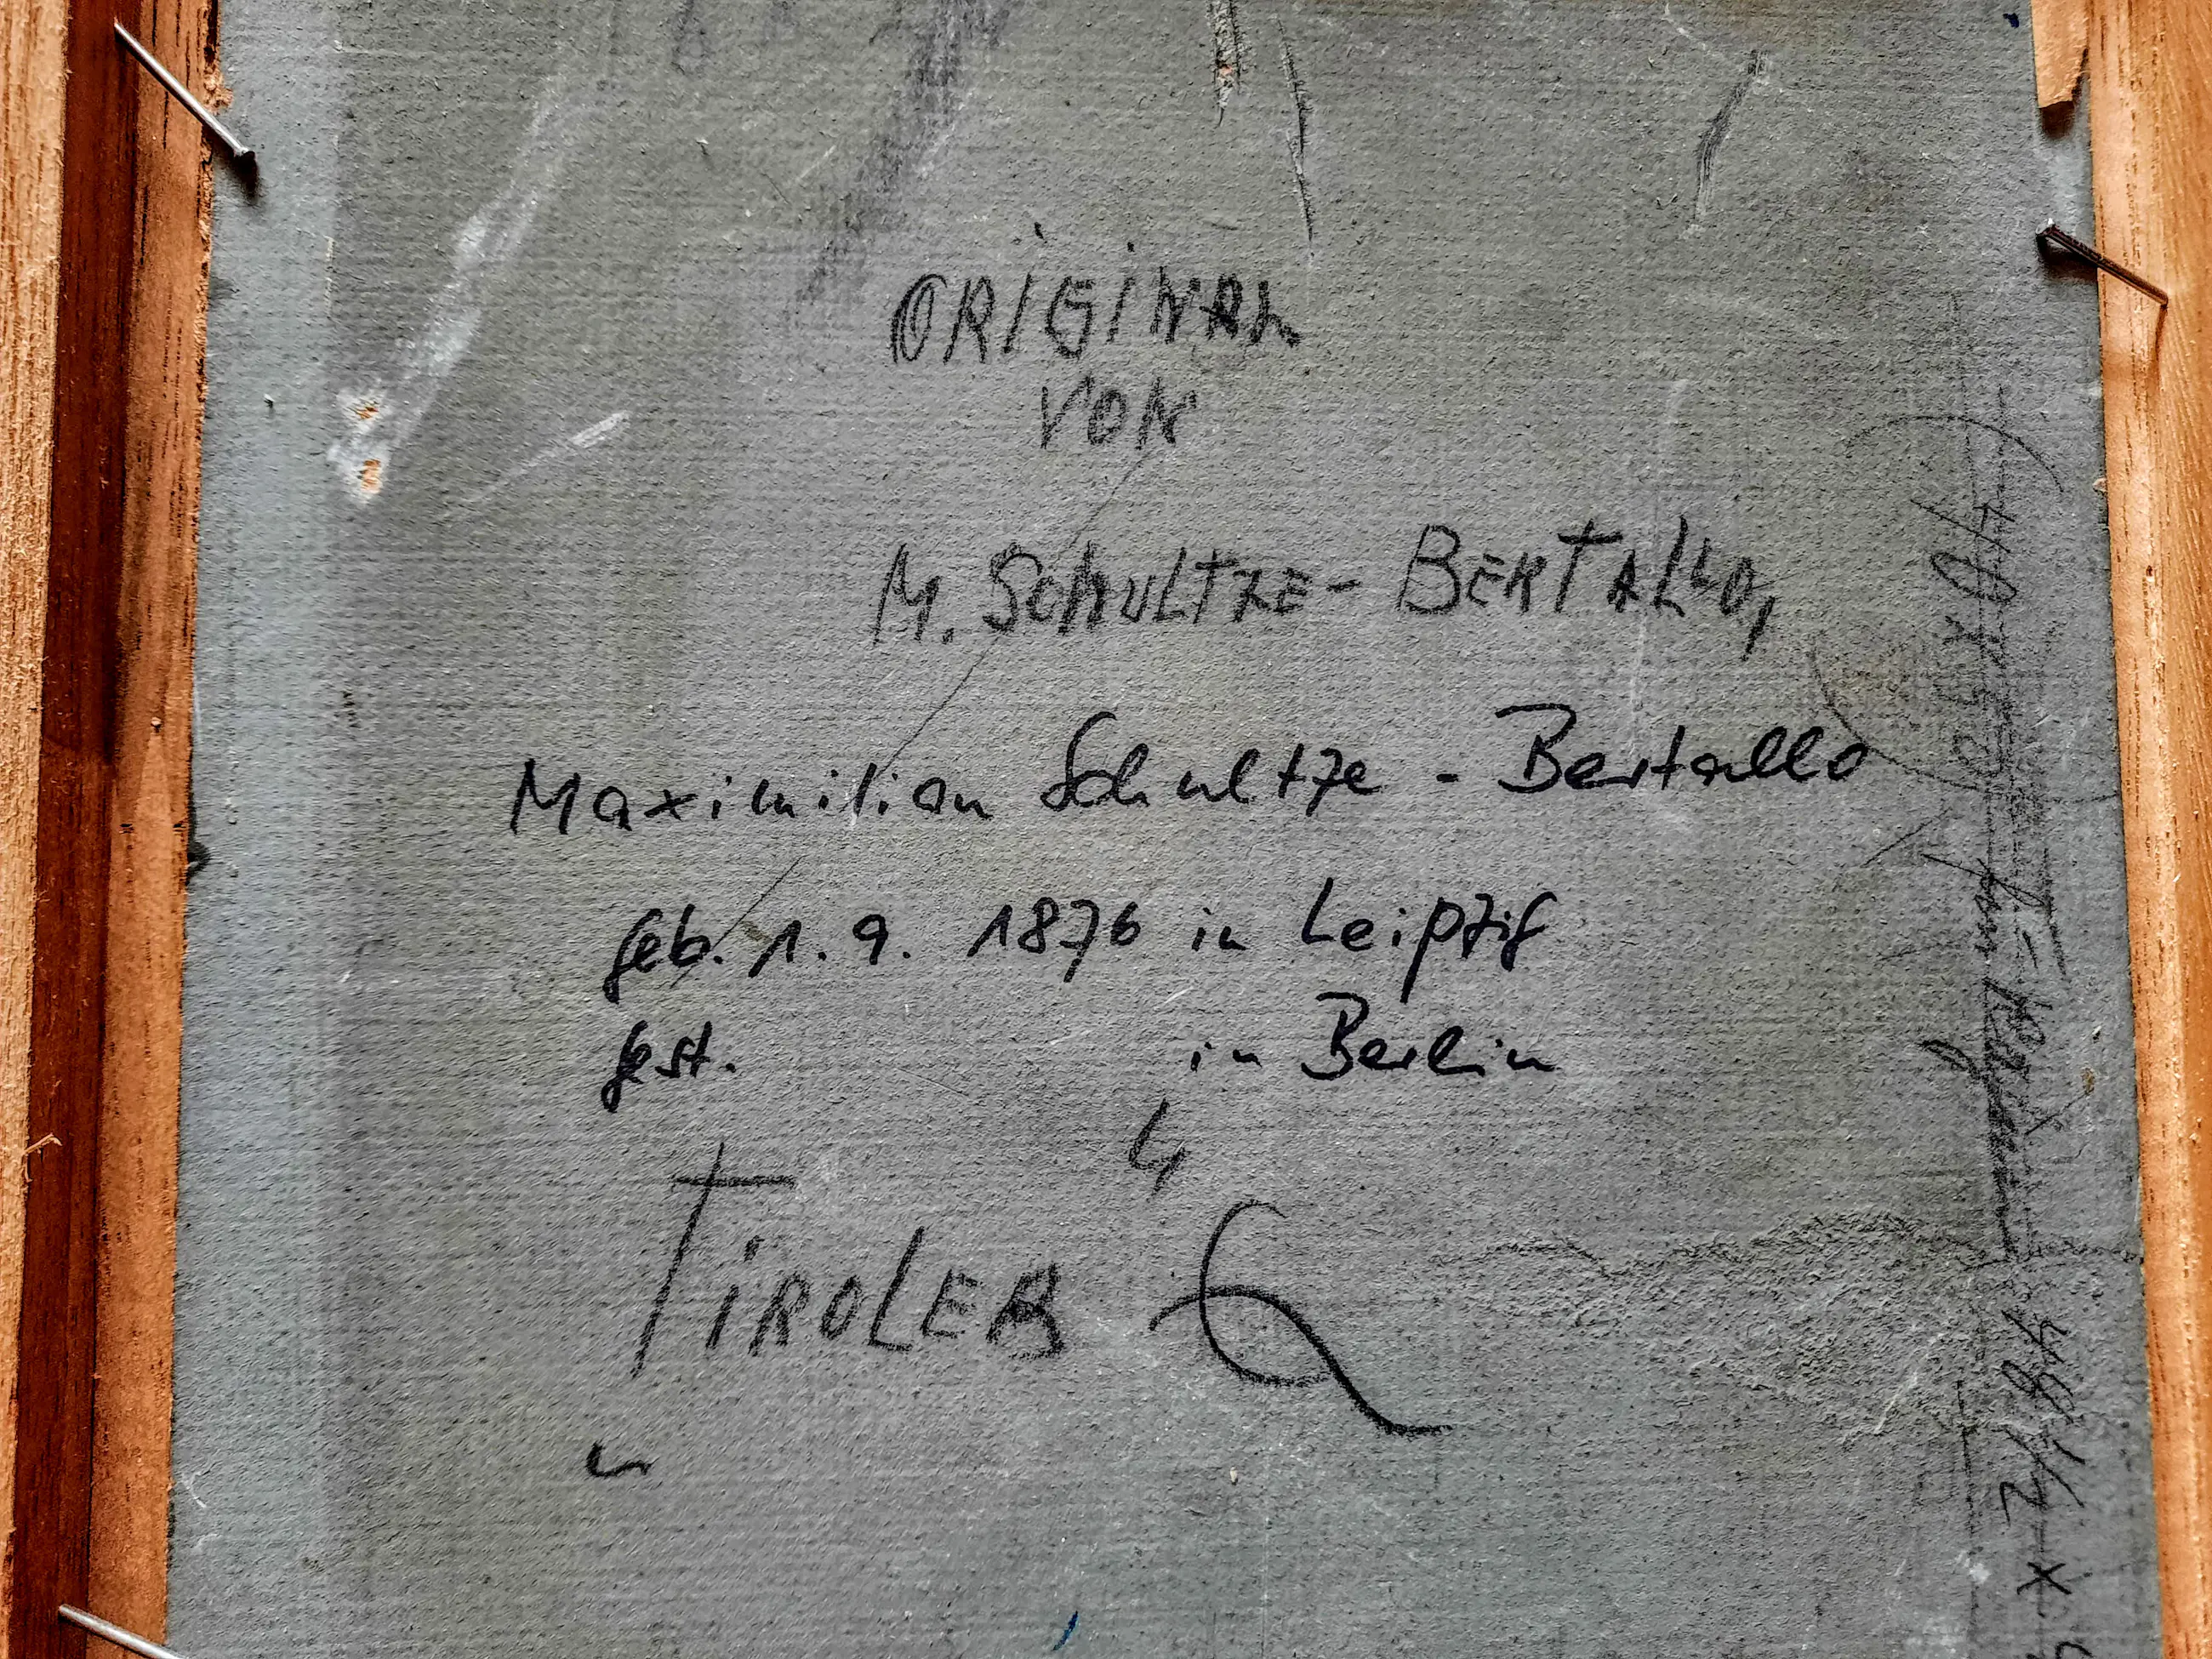 ORIGINAL
VON
M. SCHULTZE - BERTALLO,
Maximilian Schultze - Bertallo
geb. 1. 9. 1876 in Leipzig
gest. in Berlin
TIROLER